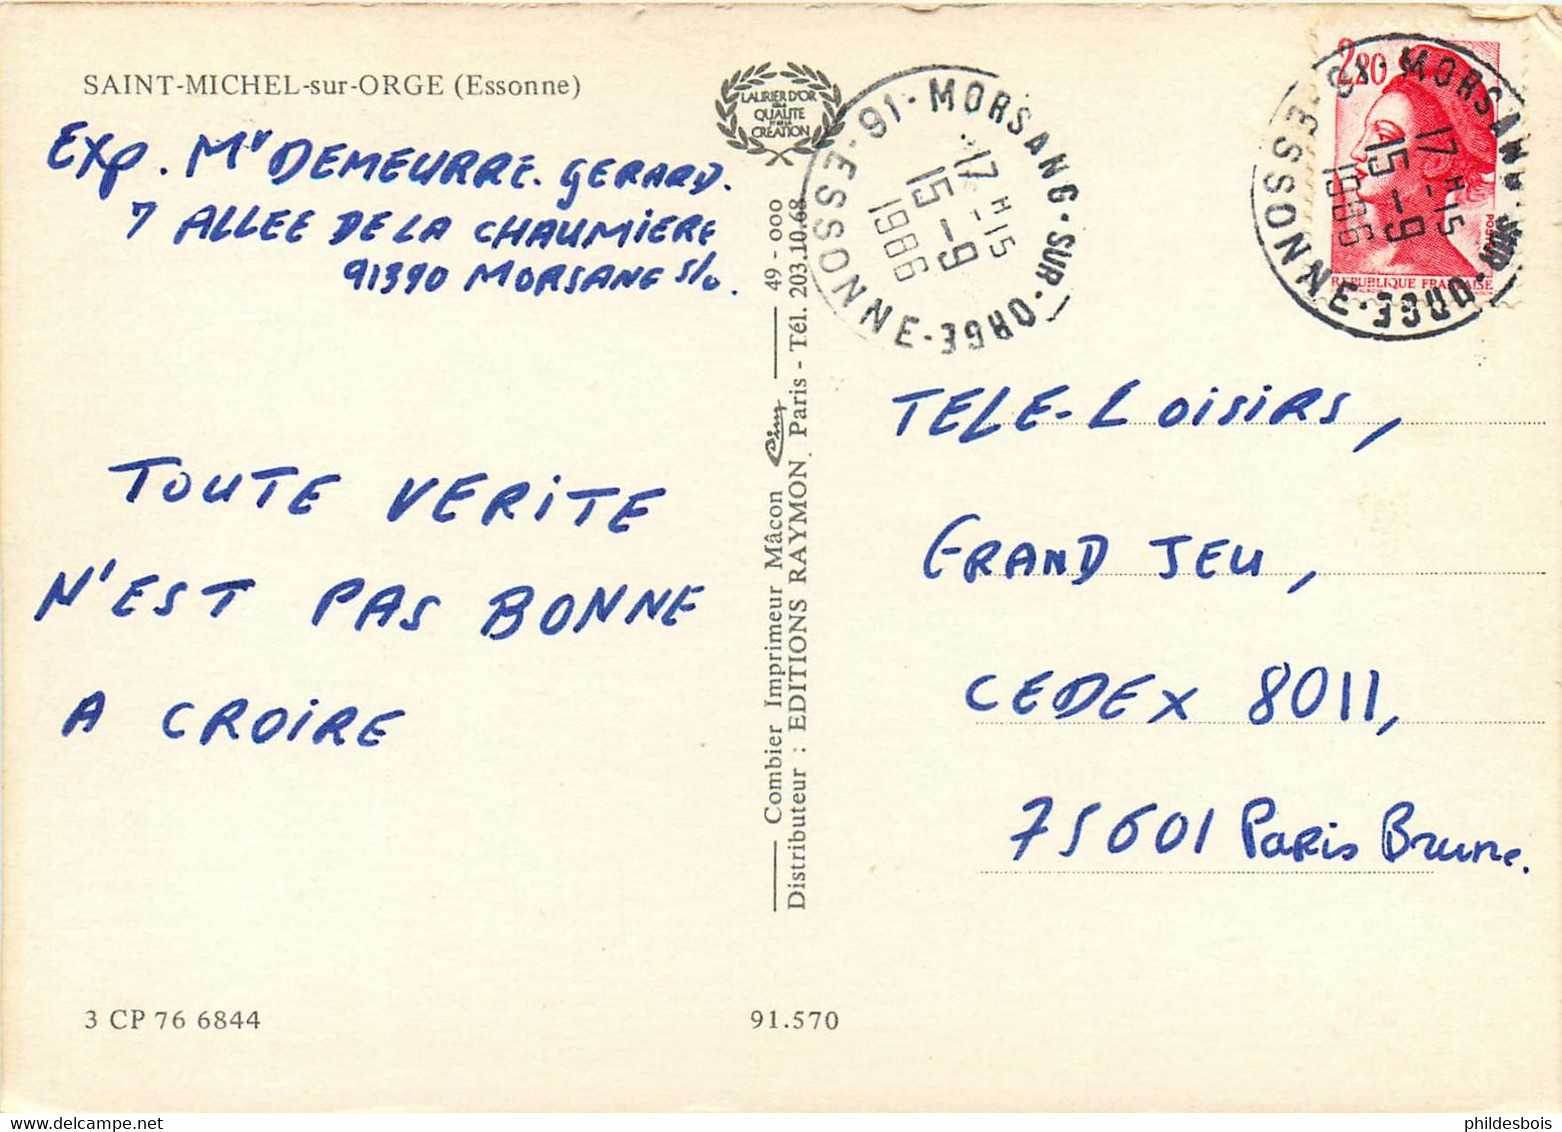 SAINT-MICHEL-sur-ORGE (Essonne)
LAURIER D'OR
DE LA
QUALITE
ET DE LA
CREATION
Exp. Mr DEMEURRE. GERARD.
7 ALLEE DE LA CHAUMIERE
91390 MORSANG S/O.
TOUTE VERITE
N'EST PAS BONNE
A CROIRE
3 CP 76 6844
Combier Imprimeur Mâcon Cim 49 - 000
Distributeur : EDITIONS RAYMON, Paris - Tél. 203.10.68
91.570
91 - MORSANG-SUR-ORGE - ESSONNE
17 H 15
15 - 9
1986
2,20
REPUBLIQUE FRANÇAISE
91 - MORSANG-SUR-ORGE - ESSONNE
17 H 15
15 - 9
1986
TELE-LOISIRS,
GRAND JEU,
CEDEX 8011,
75601 PARIS Brune.
phildesbois